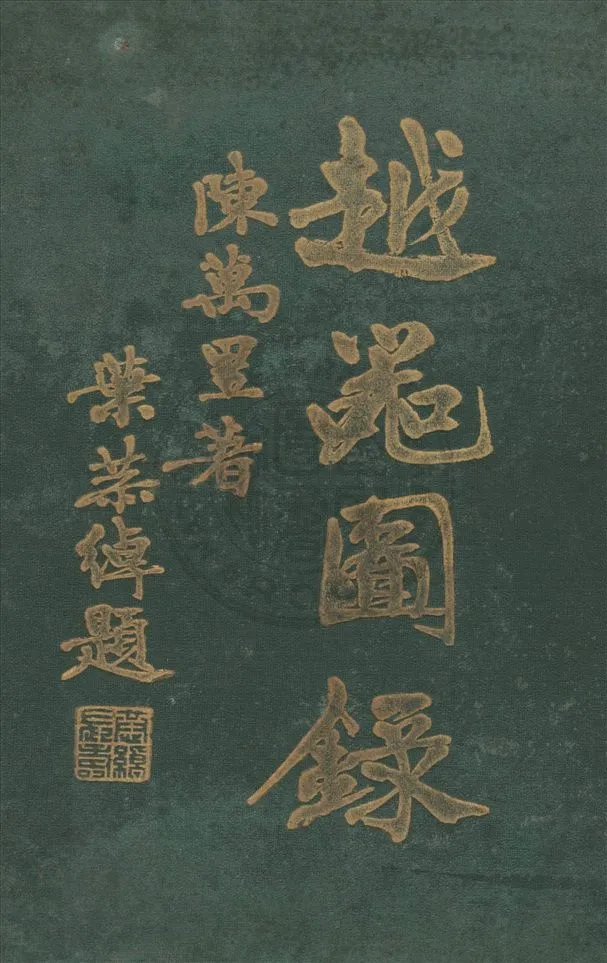 越器圖錄
陳萬里著
葉恭綽題